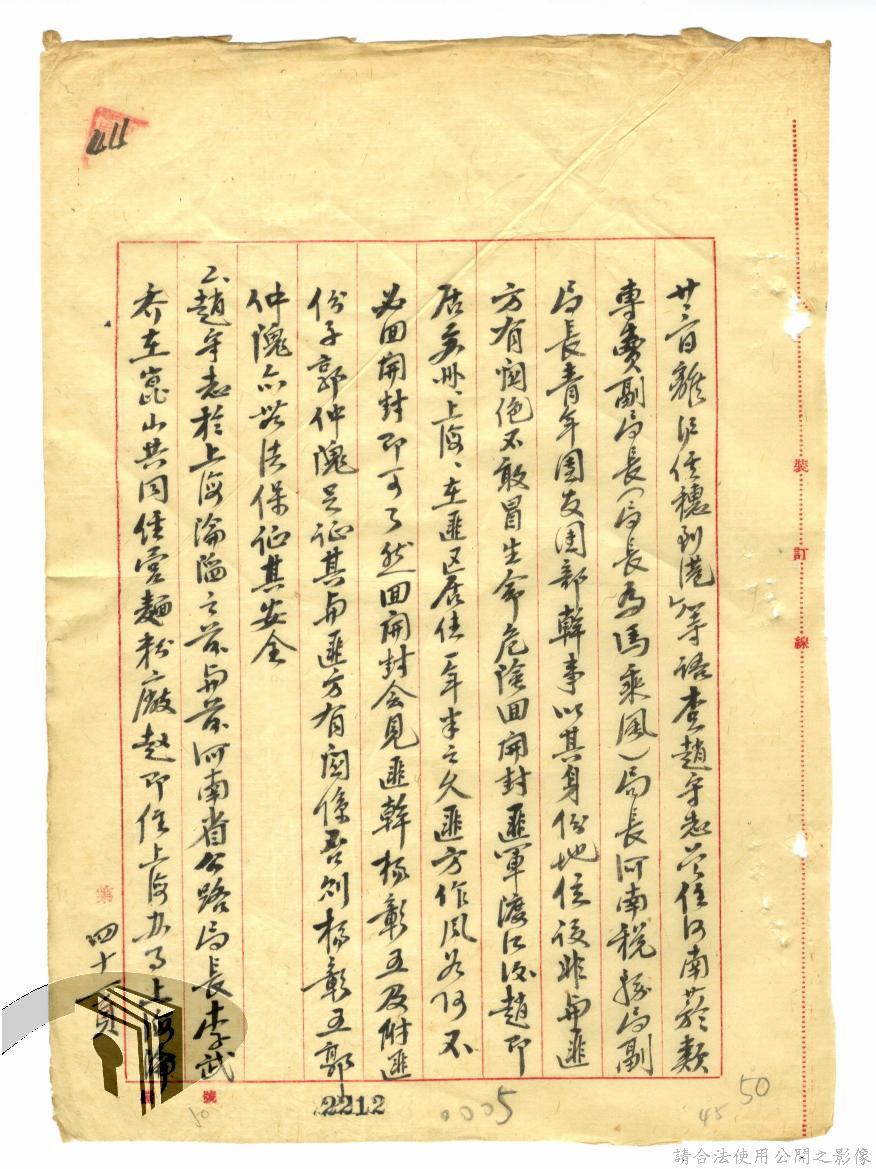 離滬經穗到港」等語查趙守志曾任河南菸類
專賣副局長(局長為馬乘風)局長河南稅務局副
局長青年團支團部幹事以其身份地位設非與匪
方有關係絕不敢冒生命危險回開封匪軍渡江後趙即
居蘇州、上海、在匪区居住一年半之久匪方作風若何不
必回開封即可了然回開封会見匪幹楊彰五及附匪
份子郭仲隗足証其與匪方有關係否則楊彰五郭
仲隗亦無法保证其安全
2.趙守志於上海淪陷之前與前河南省公路局長李武
喬在崑山共同經營麵粉廠趙即住上海办事上海淪
裝訂線
第
四十一頁
號
2212
0005
50
45
10
請合法使用公開之影像